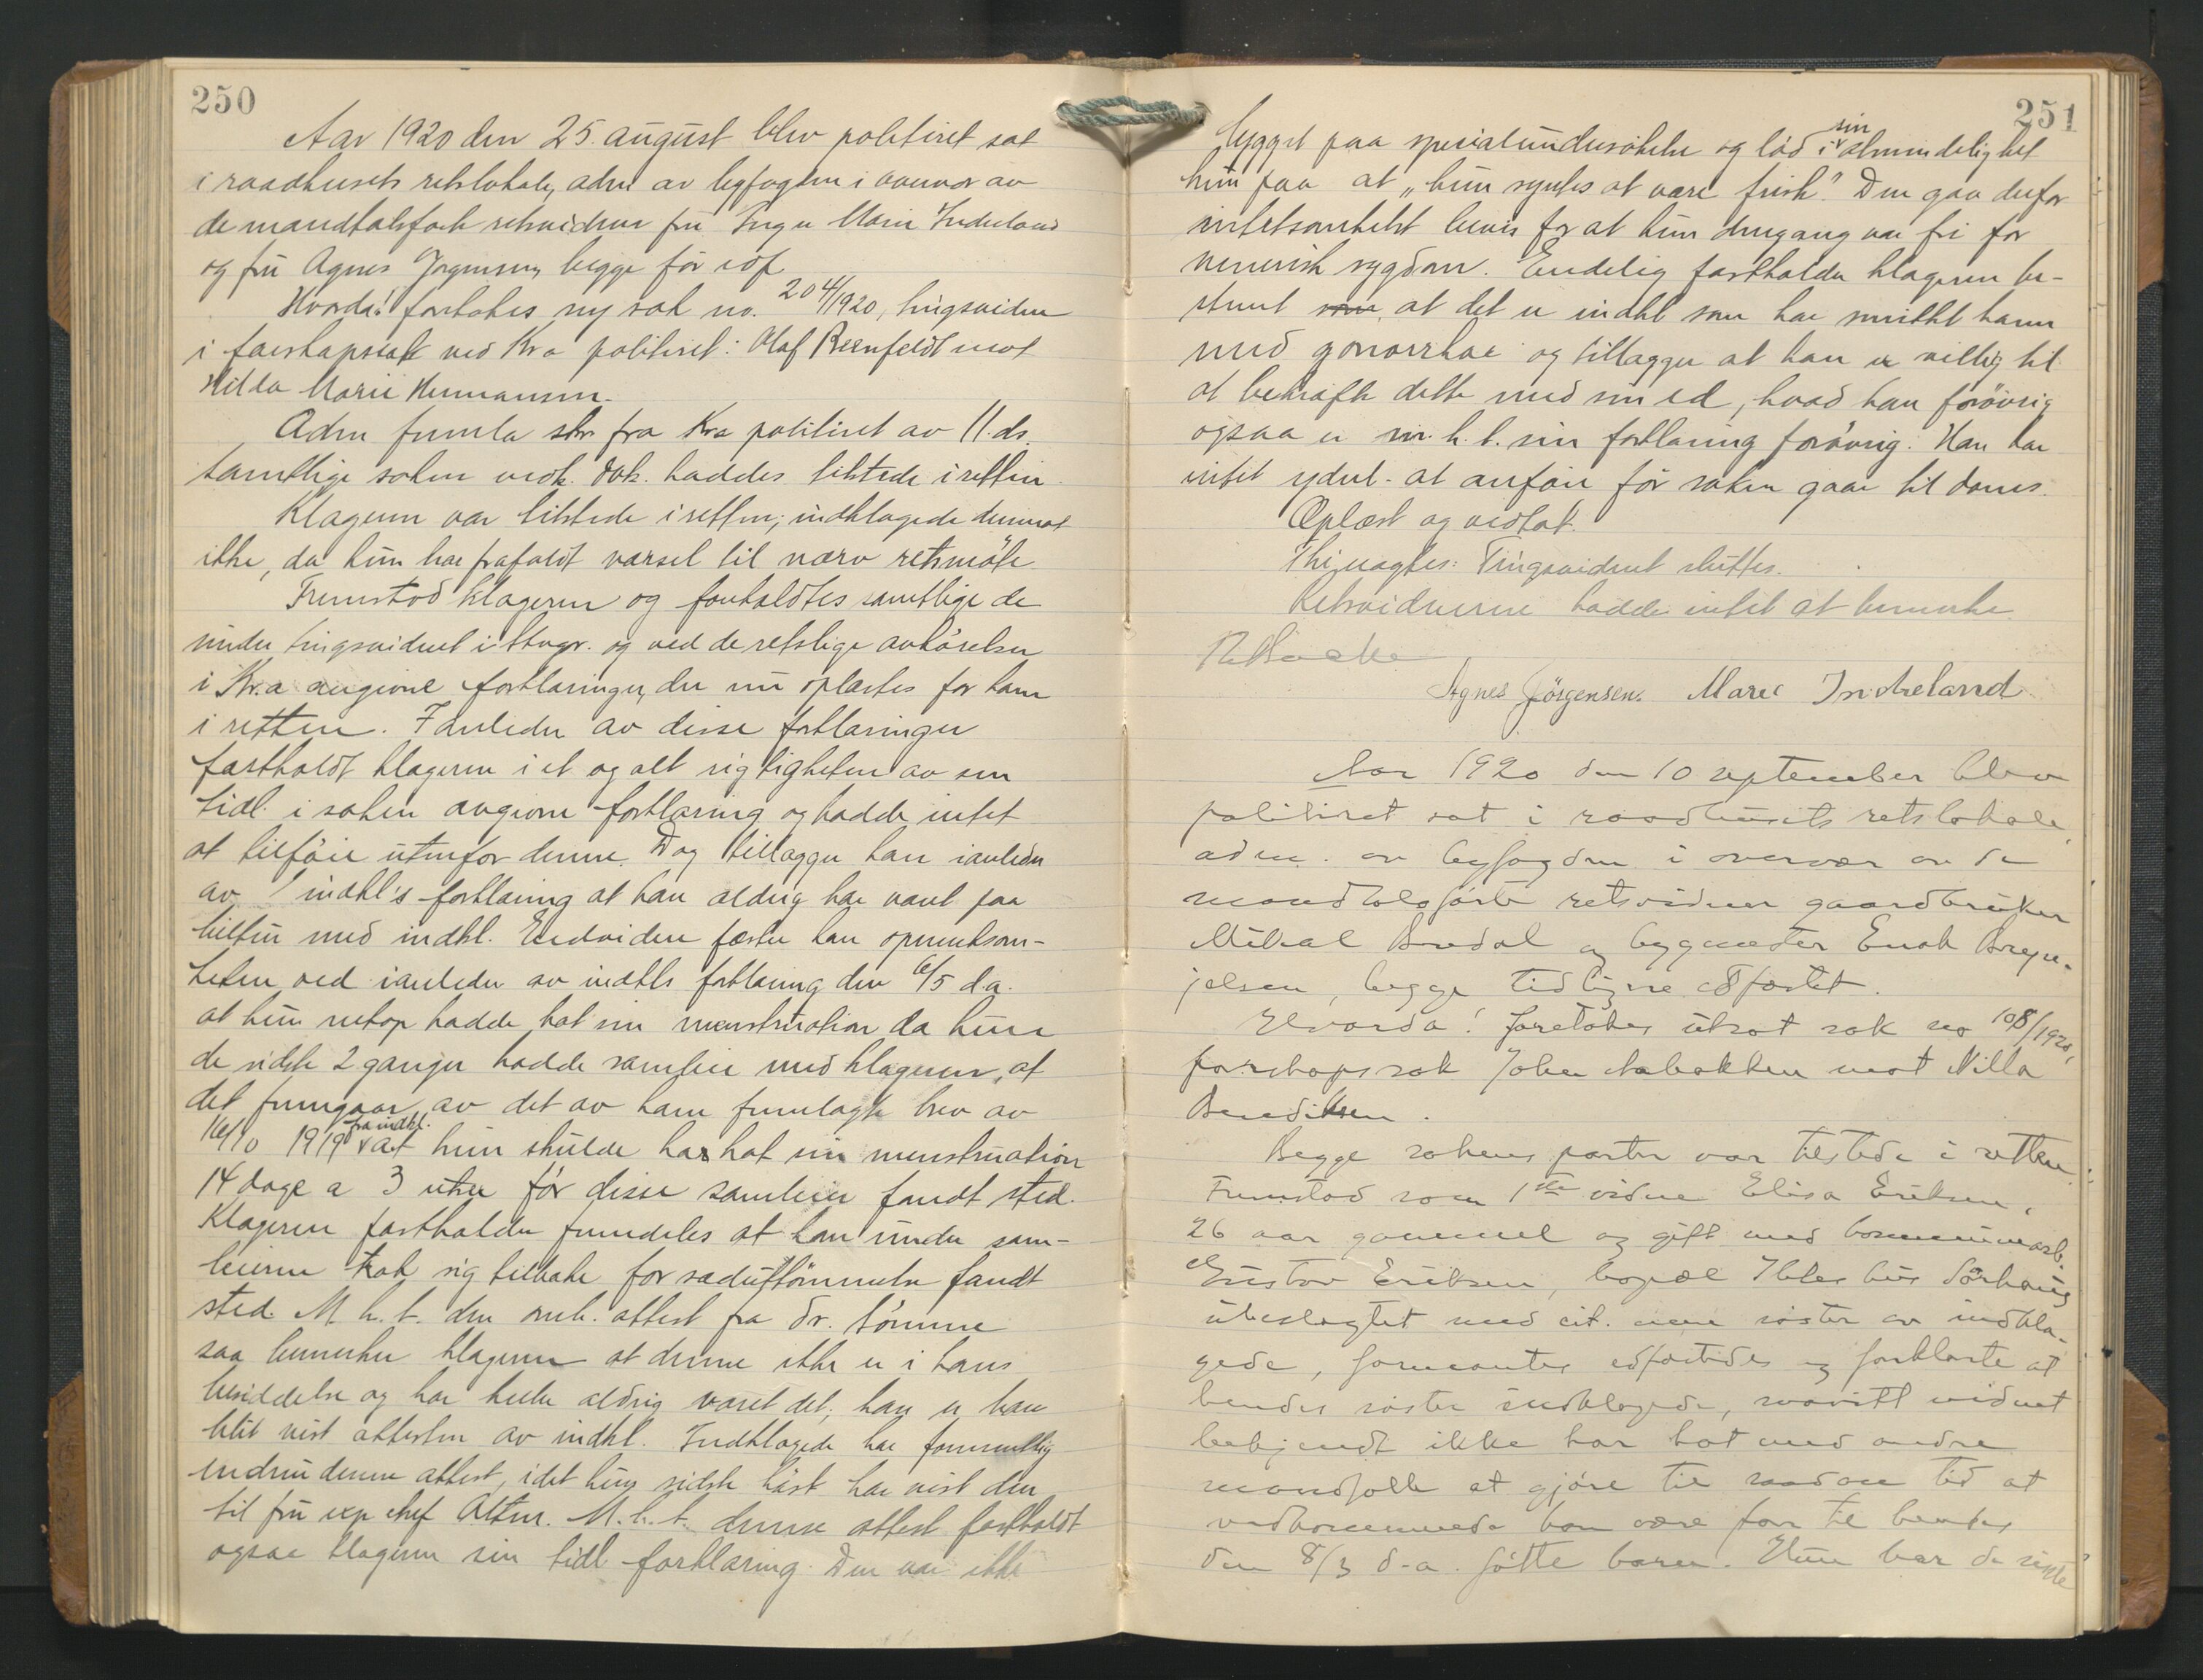 250
Aar 1920 den 25. august blev politiret sat
i raadhusets retslokale, adm. av byfogden i overvær av
de mandtalsførte retsvidner fru Inga Marie Indreland
og fru Agnes Jørgensen, begge før edf.
Hvorda! foretokes ny sak no. 204/1920, tingsvidne
i farskapssak ved Kr.a politiret: Olaf Reenfeldt mot
Hilda Marie Hermansen.
Adm fremla skr. fra Kra politiret av 11. ds.
Samtlige saken vedk. dok. haddes tilstede i retten.
Klageren var tilstede i retten; indklagede derimot
ikke, da hun har frafaldt varsel til nærv retsmøte.
Fremstod klageren og foreholdtes samtlige de
under tingsvidnet i Stvgr. og ved de retslige avhørelser
i Kr.a avgivne forklaringer, der nu oplæstes for ham
i retten. I anledn av disse forklaringer
fastholdt klageren i et og alt rigtigheten av sin
tidl. i saken avgivne forklaring og hadde intet
at tilføie utenfor denne. Dog tillægger han ianledn
av indkl's forklaring at han aldrig har vært paa
med indkl. Endvidere fæster han opmerksom-
heten ved ianledn av indkls forklaring den 6/5 d.a.
at hun netop hadde hat sin menstruation da hun
de sidste 2 ganger hadde samleie med klageren, at
det fremgaar av det av ham fremlagte brev av
16/10 1919 fra indkl. at hun skulde ha hat sin menstruation
14 dage a 3 uker før disse samleier fandt sted.
Klageren fastholder fremdeles at han under sam-
leierne trak sig tilbake før sæduttømmelse fandt
sted. M. h. t. den omh. attest fra dr. Sømme
saa bemerker klageren at denne ikke er i hans
besiddelse og har heller aldrig været det; han er bare
blit vist attesten av indkl. Indklagede har formentlig
endnu denne attest, idet hun sidste høst har vist den
til fru exp chef M. h. t. denne attest fastholdt
ogsaa klageren sin tidl forklaring. Den var ikke
251
bygget paa specialundersøkelse og lød i sin almindelighet
kun paa at "hun syntes at være frisk". Den gav derfor
intetsomhelst bevis for at hun dengang var fri for
venerisk sygdom. Endelig fastholder klageren be-
stemt at det er indkl som har smittet ham
med gonorrhoe og tillægger at han er villig til
at bekræfte dette med sin ed, hvad han forøvrig
ogsaa er m. h. t. sin forklaring forøvrig. Han har
intet yderl. at anføre før saken gaar til doms.
Oplæst og vedtat.
Thi eragtes: Tingsvidnet sluttes.
Retsvidnerne hadde intet at bemerke.
Agnes Jørgensen. Marie Indreland
Aar 1920 den 10 september blev
politiret sat i raadhusets retslokale
adm. av byfogden i overvær av de
mandtalsførte retsvidner gaardbruker
Mikal Bredal og bygmester Enok Bryn-
jelsen, begge tidligere edfæstet.
Hvorda! foretokes utsat sak no 108/1920,
farskapssak John Aabakken mot Nilla
Benediktsen.
Begge sakens parter var tilstede i retten.
Fremstod som 1ste vidne Elisa Eriksen,
26 aar gammel og gift med kommunearb.
Gustav Eriksen, bopæl hus Sørhaug
ubeslægtet med cit. men søster av indkla-
gede, formantes edfæstedes og forklarte at
hendes søster indklagede, saavidt vidnet
bekjendt ikke har hat med andre
mandfolk at gjøre til saadan tid at
vedkommende kan være far til hendes
den 8/3 d.a. fødte barn. Hun har de siste